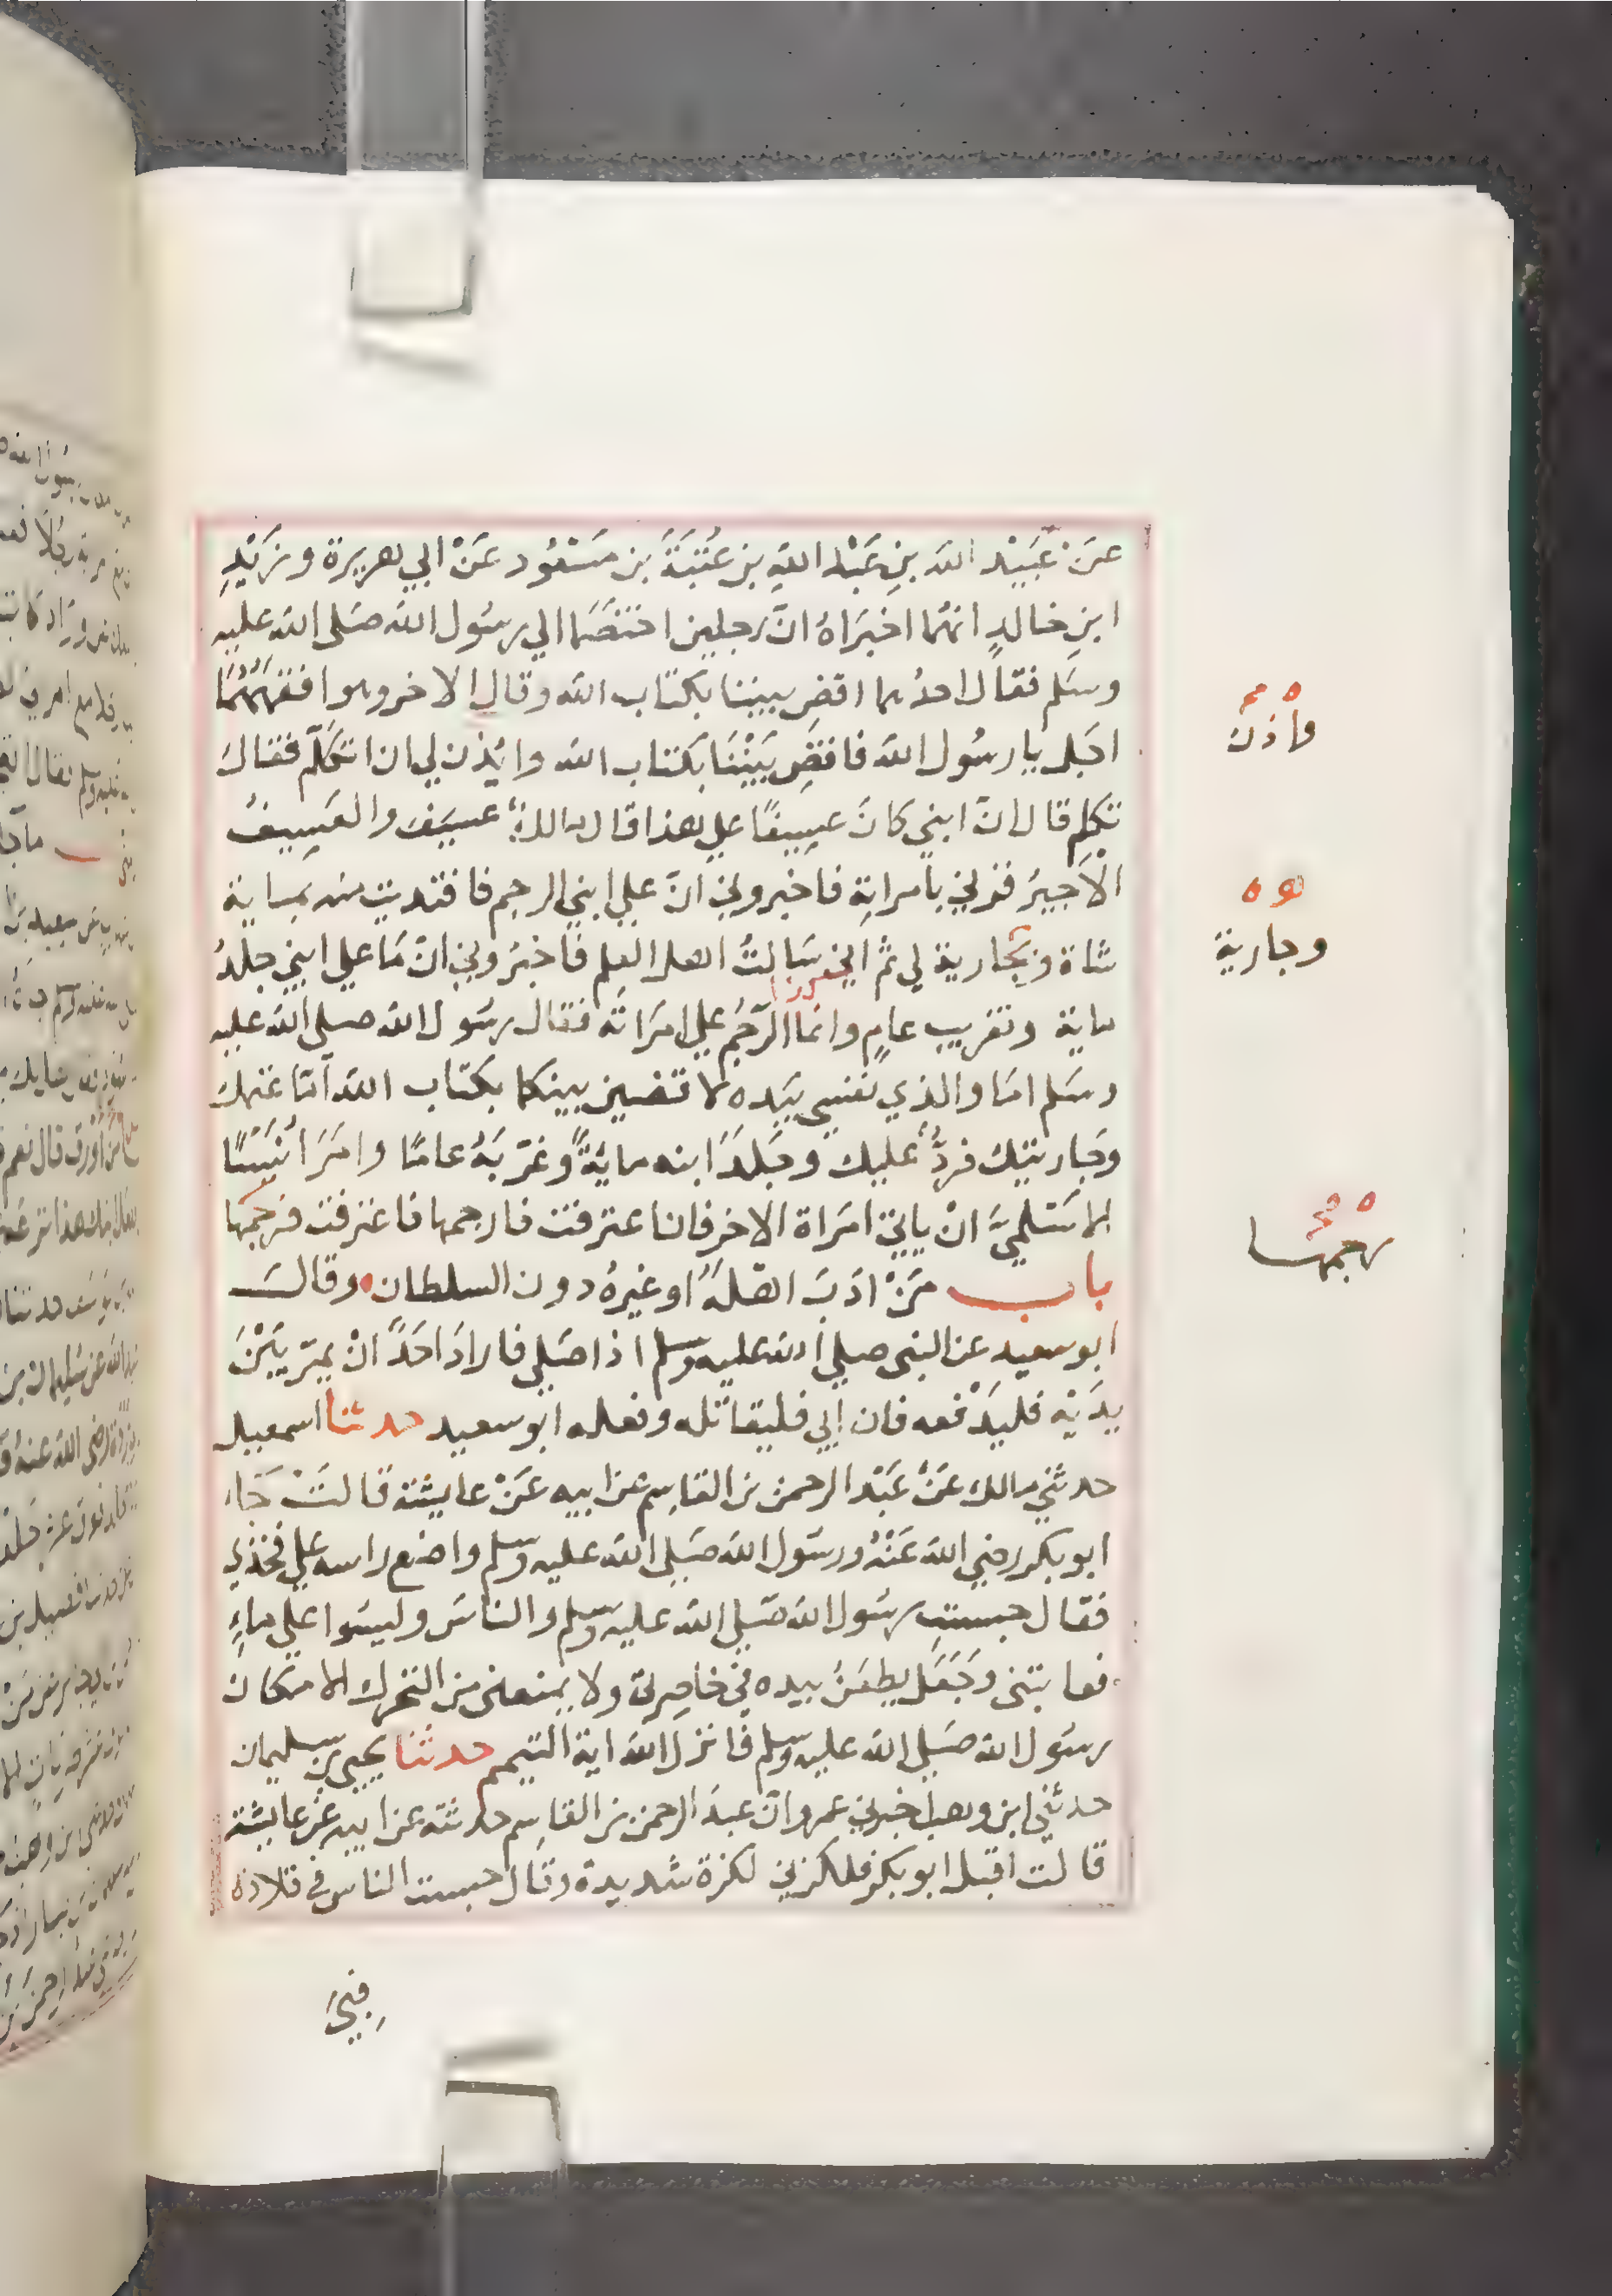 عَنْ عُبَيْد الله بنِ عَبْد اللهِ بن عُتْبَةَ بن مَسْعُود عَنْ ابي هريرة و زَيْدِ
ابنِ خالدٍ انهما اخبَرَاهُ انَّ رجلين اختصَمَا الي رسُول الله صَلى الله عليه
وسَلم فقال احدُهما اقضِ بيننا بكتاب الله وقال الاخر وهوا افقهُهُمَا
اجَل يا رسُول الله فاقضِ بَيْنَنَا بكتاب الله وايْذن لي ان اتكلّم فقال
تكلم قال انّ ابني كانَ عسِيفًا علي هذا قال مالك عسيف والعَسِيفُ
الْاَجيرُ فزني بامراتِه فاخبروني انَّ علي ابني الرجم فافتديت منه بماية
شاة وبجارية لي ثمّ اني سَالتُ اهل العلم فاخبرُوني انّ مَا علي ابني جلدُ
ماية وتغريب عامٍ وانما الرّجمُ علي امرَاته فقال رسُول الله صلى الله عليه
وسَلم امَا والذي نفسي بيَده لاقضين بينكما بكتاب الله امّا غنمك
وجَاريتك فردٌّ عليك وجَلَدَ ابنه مايةً وغرّبهُ عامًا وامَرَ انَيسًا
الاسْلميَّ انْ ياتي امرَاة الاخر فان اعترفت فارجمها فاعترفت فرجمها
باب مَنْ ادَبَ اهْلَهُ اوغيرهُ دون السلطان وقال
ابو سعيد عن النبى صلي الله عليه وسلم اذا صَلي فارادَ احَدٌ انْ يمرّ بَيْنَ
يدَيْهِ فليَدْفعه فان ابي فليقاتله وفعله ابو سعيد حدثنا اسمعيل
حدثني مالك عَنْ عَبْد الرحمن بن القاسِم عن ابيه عَنْ عايشة قالتْ جَاء
ابو بكر رضي الله عَنْهُ ورسول الله صَلي الله عليه وسلم واضع راسه علي فخذي
فقال حبستِ رسُول الله صَلي الله عليه وسلم والناس وليسُوا علي ماءٍ
فعاتبنى وَجَعَل يطعَنُ بيده في خاصِرتي ولا يمنعنى من التحرك الا مكان
رسُول الله صَلي الله عليه وسلم فانزل الله اية التيمم حدثنا يحيي بن سليمان
حدثني ابن وهب اخبرني عمرو انّ عبدَ الرحمن بن القاسِم حدثه عن ابيه عن عايشة
قالت اقبل ابو بكر فلكزني لكزة شديدة وقال حبست الناس في قلادة
فِبيَ
وأذن
وجارية
رجمها